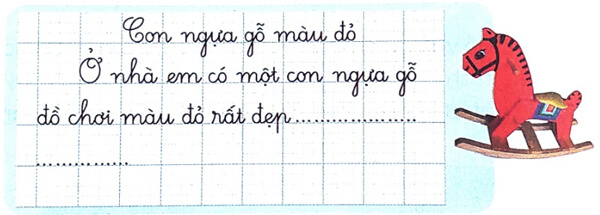 Con ngựa gỗ màu đỏ
Ở nhà em có một con ngựa gỗ
đồ chơi màu đỏ rất đẹp......................
.................